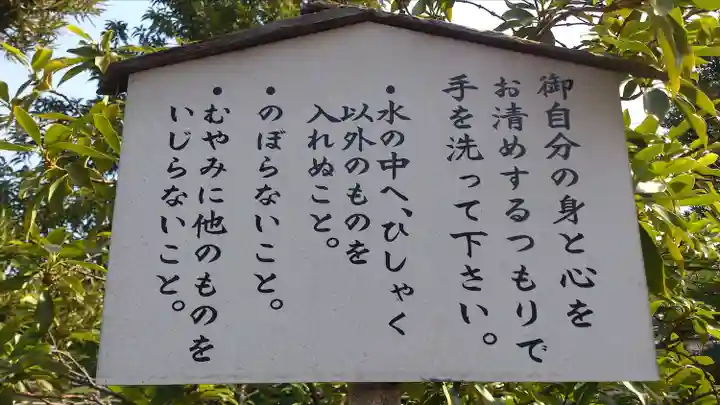 御自分の身と心を
お清めするつもりで
手を洗って下さい。
・水の中へ、ひしゃく
以外のものを
入れぬこと。
・のぼらないこと。
・むやみに他のものを
いじらないこと。